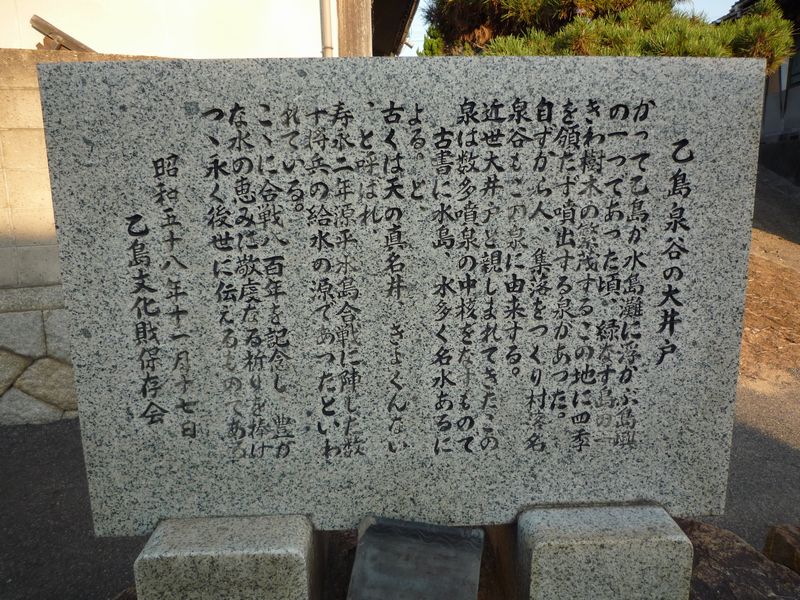 乙島泉谷の大井戸
かって乙島が水島灘に浮かぶ島嶼
の一つであった頃、緑なす島の
きわ樹木の繁茂するこの地に四季
を頒たず噴出する泉があった。
自ずから人、集落をつくり村落名
泉谷もこの泉に由来する。
近世大井戸と親しまれてきたこの
泉は数多噴泉の中核をなすもので
古書に水島、水多く名水あるに
よる。と
古くは天の真名井、きよくんない
、と呼ばれ
寿永二年源平水島合戦に陣した数
千将兵の給水の源であつたといわ
れている。
こゝに合戦八百年を記念し 豊か
な水の恵みに敬虔なる祈りを捧げ
つゝ永く後世に伝えるものである
昭和五十八年十一月十七日
乙島文化財保存会